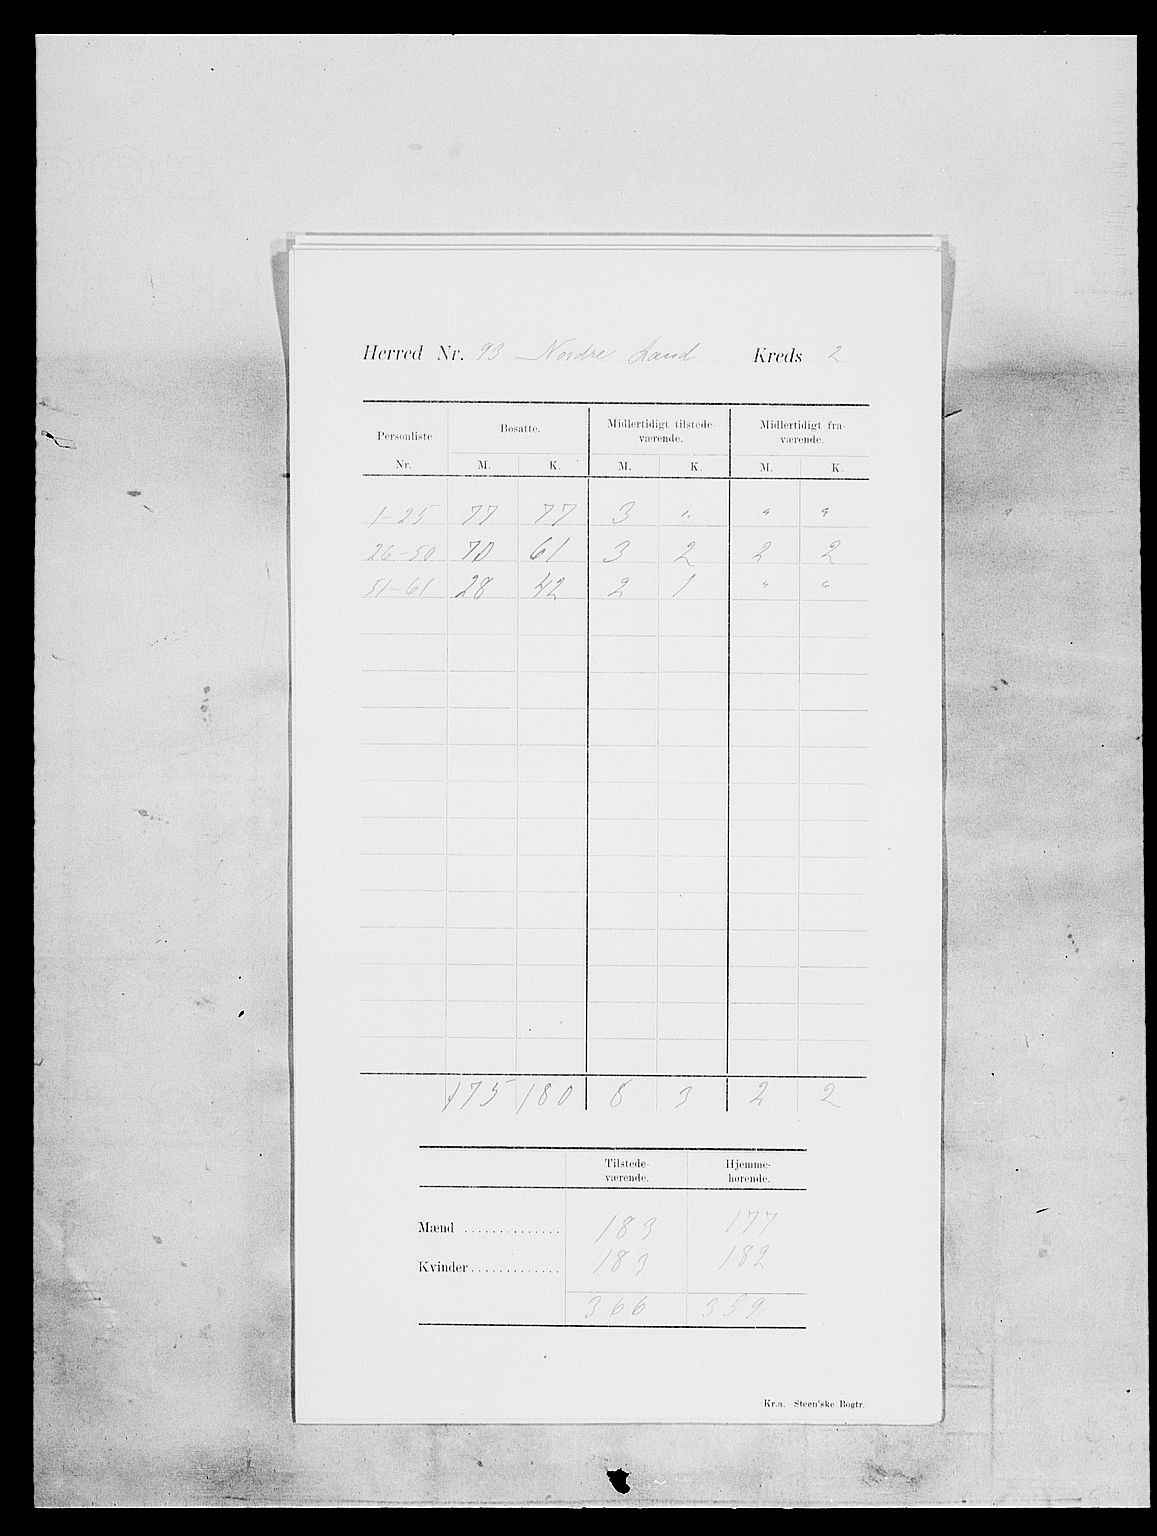 Herred Nr. 93 Nordre Land Kreds 2
Personliste Nr. Bosatte. Midlertidigt tilstedeværende. Midlertidigt fraværende.
M. K. M. K. M. K.
1-25 77 77 3 " " "
26-50 70 61 3 2 2 2
51-61 28 42 2 1 " "
175 180 8 3 2 2
Tilstede- Hjemme-
værende. hørende.
Mænd .............. 183 177
Kvinder ............. 183 182
366 359
Kr.a. Steen'ske Bogtr.